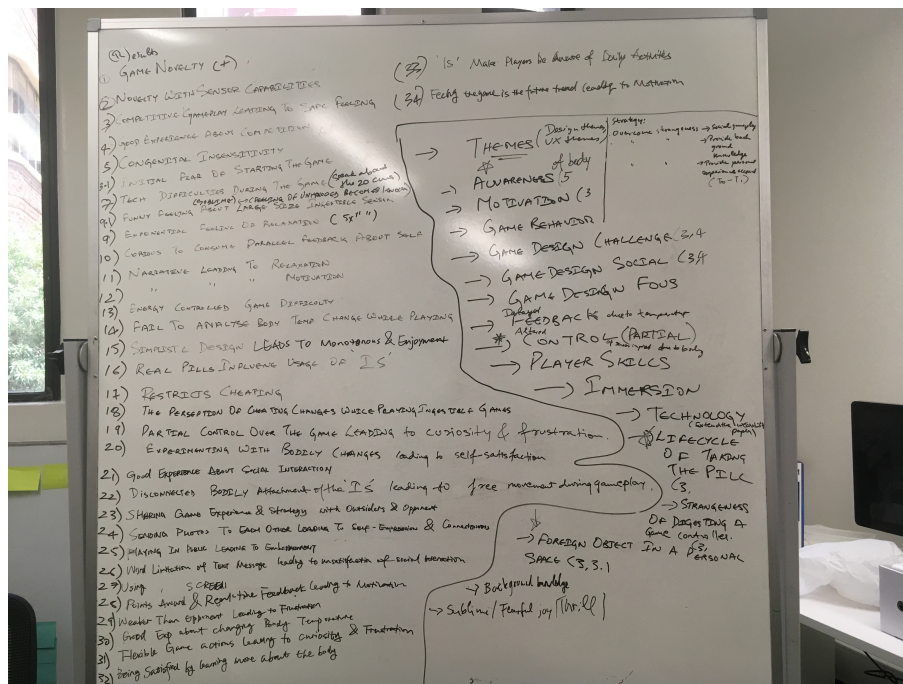 ① GAME NOVELTY (+)
② NOVELTY WITH SENSOR CAPABILITIES
3) COMPETITIVE GAMEPLAY LEADING TO SAFE FEELING
4) GOOD EXPERIENCE ABOUT COMPETITION
5) CONGENITAL INSENSITIVITY
INITIAL FEAR OF STARTING THE GAME
7) TECH DIFFICULTIES DURING THE GAME
FUNNY FEELING ABOUT LARGE SIZE INGESTIBLE SENSOR
9) EXPONENTIAL FEELING OF RELAXATION
10) CURIOUS TO CONSUME PARALLEL FEEDBACK ABOUT SELF
11) NARRATIVE LEADING TO RELAXATION
12) " " " MOTIVATION
13) ENERGY CONTROLLED GAME DIFFICULTY
14) FAIL TO ANALYSE BODY TEMP CHANGE WHILE PLAYING
15) SIMPLISTIC DESIGN LEADS TO Monotonous & Enjoyment
16) REAL PILLS INFLUENC USAGE OF 'IS'
17) RESTRICTS CHEATING
18) THE PERSEPTION OF CHEATING CHANGES WHILE PLAYING INGESTIBLE GAMES
19) PARTIAL CONTROL OVER THE GAME LEADING to curiosity & frustration.
20) EXPERIMENTING WITH BODILY CHANGES leading to self-satisfaction
21) GOOD EXPERIENCE ABOUT SOCIAL INTERACTION
22) DISCONNECTED BODILY Attachment of the 'IS' leading to free movement during gameplay.
23) SHARING GAME Experience & Strategy with Outsiders & Opponent
24) SENDING PHOTOS TO EACH OTHER LEADING TO Self-Expression & Connectedness
25) PLAYING IN PUBLIC LEADING TO Embarrassment
26) Word Limitation of Text Message leading to unsatisfaction of social interaction
27) Using , SCREEN
28) Points Award & Repetitive Feedback leading to Motivation
29) Weaker Than Opponent Leading to Frustration
30) Good Exp about changing Body Temperature
31) Flexible Game actions leading to curiosity & Frustration
32) Being Satisfied by learning more about the body
(33) 'IS' Make Players be Aware of Daily Activities
(34) Feeling the game is the future trend leading to Motivation
→ THEMES (Design themes / UX themes)
Strategy:
Overcome strangeness → Social gameplay
→ Provide background knowledge
→ Provide personal
→ AWARENESS (5 of body
→ MOTIVATION (3
→ GAME BEHAVIOR
→ GAME DESIGN CHALLENGE (3,4
→ GAME DESIGN SOCIAL (3,4
→ GAME DESIGN FOUS
→ FEEDBACK due to temperature
→ CONTROL (PARTIAL)
→ PLAYER SKILLS
→ IMMERSION
→ TECHNOLOGY
→ LIFECYCLE OF TAKING THE PILL (3,
→ STRANGENESS OF DIGESTING A game controller.
→ FOREIGN OBJECT IN A PERSONAL SPACE (3,3.1)
→ Background knowledge
→ Sublime / Fearful joy / Thrill